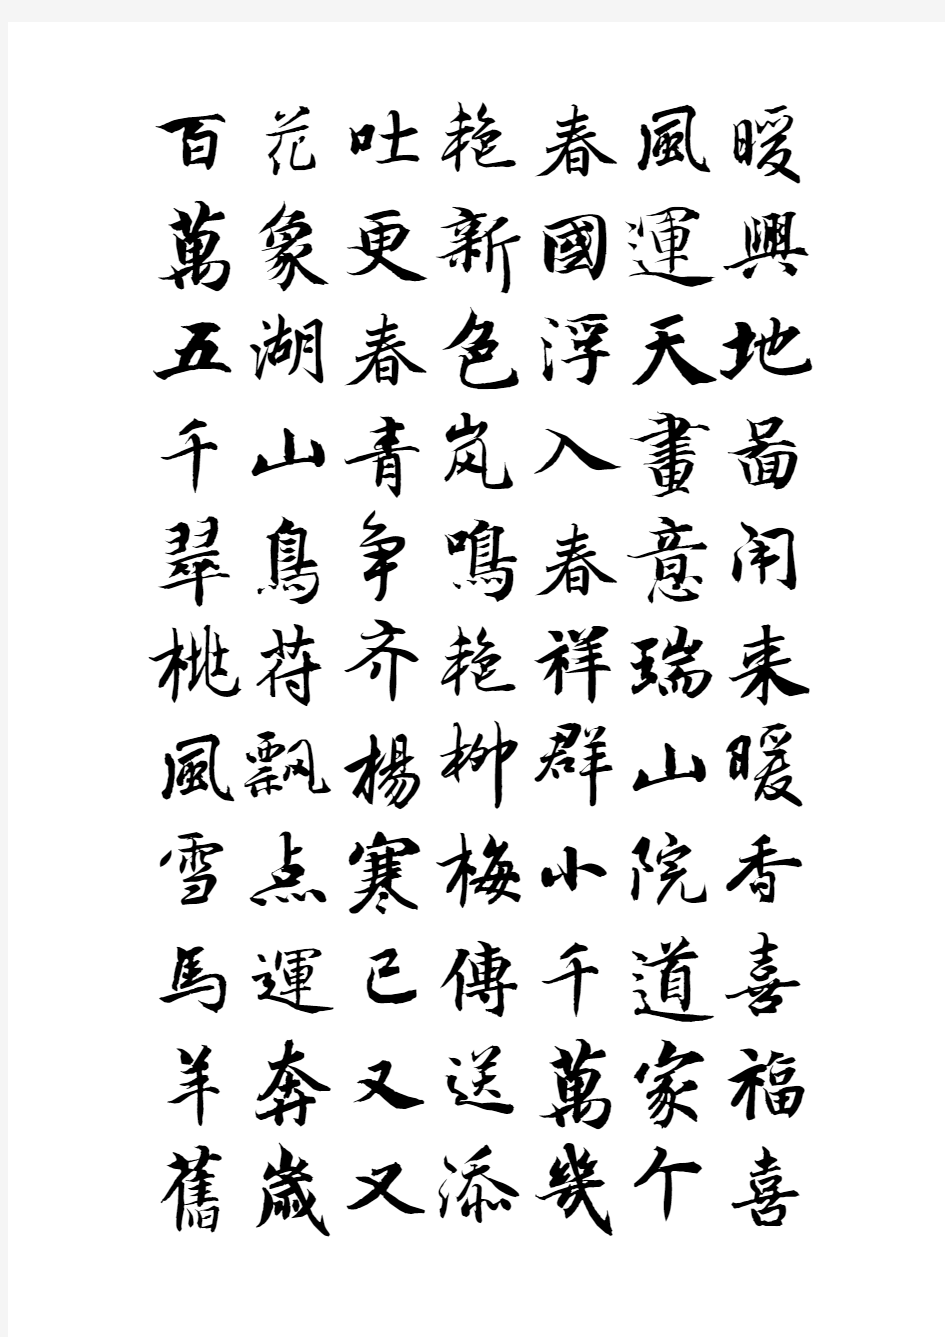 百花吐艳春風暖
萬象更新國運興
五湖春色浮天地
千山青岚入畫啚
翠鳥争鳴春意闹
桃荷齐艳祥瑞来
風飘楊柳群山暖
雪点寒梅小院香
馬運已傳千道喜
羊奔又送萬家福
舊歲又添幾个喜